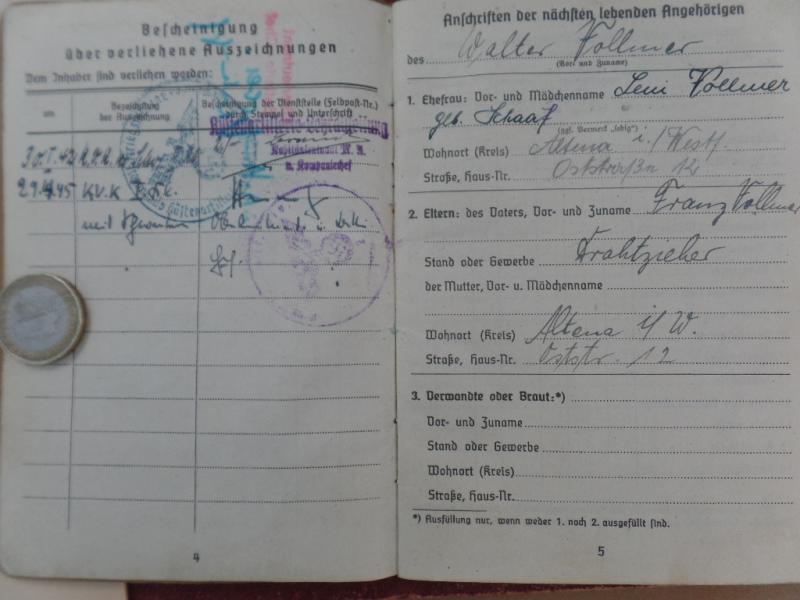 Bescheinigung
über verliehene Auszeichnungen
Dem Inhaber sind verliehen worden:
am
Bezeichnung
der Auszeichnung
Bescheinigung der Dienststelle (Feldpost-Nr.)
durch Stempel und Unterschrift
Kapitänleutnant M. A.
u. Kompaniechef
45 KV.K
mit
4
Anschriften der nächsten lebenden Angehörigen
des Walter Vollmer
(Vor- und Zuname)
1. Ehefrau: Vor- und Mädchenname Leni Vollmer
geb. Schaaf
(ggf. Vermerk „ledig“)
Wohnort (Kreis) Altena i./Westf.
Straße, Haus-Nr. Oststraße 12
2. Eltern: des Vaters, Vor- und Zuname Franz Vollmer
Stand oder Gewerbe Drahtzieher
der Mutter, Vor- u. Mädchenname
Wohnort (Kreis) Altena i/W.
Straße, Haus-Nr. Oststr. 12
3. Verwandte oder Braut:*)
Vor- und Zuname
Stand oder Gewerbe
Wohnort (Kreis)
Straße, Haus-Nr.
*) Ausfüllung nur, wenn weder 1. noch 2. ausgefüllt sind.
5